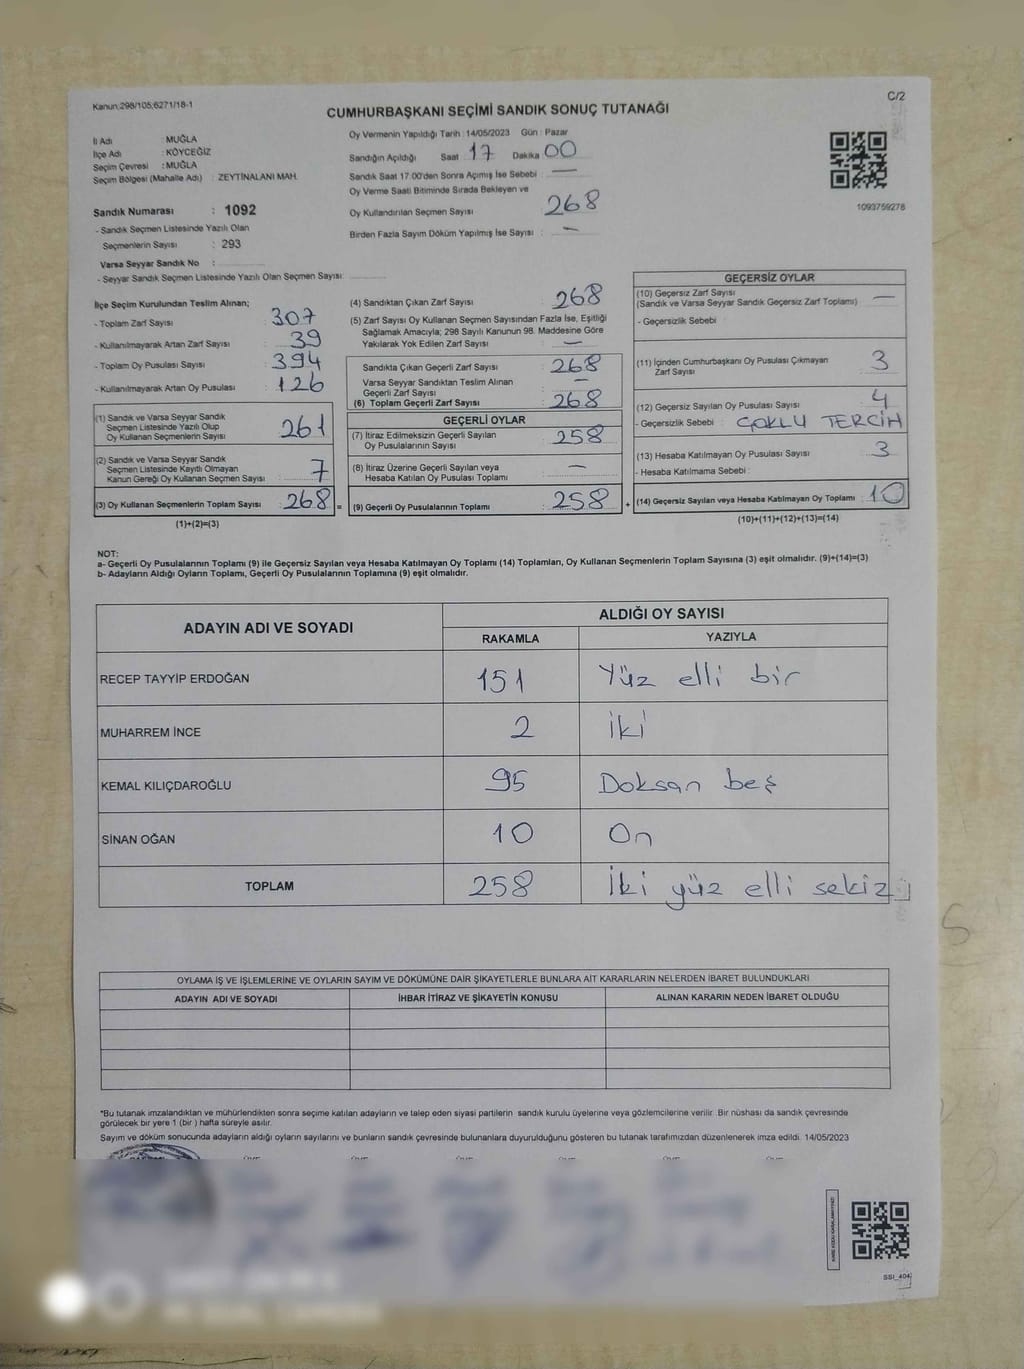 Kanun;298/105;6271/18-1
C/2
CUMHURBAŞKANI SEÇİMİ SANDIK SONUÇ TUTANAĞI
İl Adı : MUĞLA
İlçe Adı : KÖYCEĞİZ
Seçim Çevresi : MUĞLA
Seçim Bölgesi (Mahalle Adı) : ZEYTİNALANI MAH.
Sandık Numarası : 1092
- Sandık Seçmen Listesinde Yazılı Olan
Seçmenlerin Sayısı : 293
Varsa Seyyar Sandık No :
- Seyyar Sandık Seçmen Listesinde Yazılı Olan Seçmen Sayısı:
Oy Vermenin Yapıldığı Tarih : 14/05/2023 Gün : Pazar
Sandığın Açıldığı Saat 17 Dakika 00
Sandık Saat 17.00'den Sonra Açımış İse Sebebi : —
Oy Verme Saati Bitiminde Sırada Bekleyen ve
Oy Kullandırılan Seçmen Sayısı 268
Birden Fazla Sayım Döküm Yapılmış İse Sayısı : —
1093759278
İlçe Seçim Kurulundan Teslim Alınan;
- Toplam Zarf Sayısı : 307
- Kullanılmayarak Artan Zarf Sayısı : 39
- Toplam Oy Pusulası Sayısı : 394
- Kullanılmayarak Artan Oy Pusulası : 126
(1) Sandık ve Varsa Seyyar Sandık
Seçmen Listesinde Yazılı Olup
Oy Kullanan Seçmenlerin Sayısı : 261
(2) Sandık ve Varsa Seyyar Sandık
Seçmen Listesinde Kayıtlı Olmayan
Kanun Gereği Oy Kullanan Seçmen Sayısı : 7
(3) Oy Kullanan Seçmenlerin Toplam Sayısı : 268 =
(1)+(2)=(3)
(4) Sandıktan Çıkan Zarf Sayısı : 268
(5) Zarf Sayısı Oy Kullanan Seçmen Sayısından Fazla İse, Eşitliği
Sağlamak Amacıyla; 298 Sayılı Kanunun 98. Maddesine Göre
Yakılarak Yok Edilen Zarf Sayısı : —
Sandıkta Çıkan Geçerli Zarf Sayısı : 268
Varsa Seyyar Sandıktan Teslim Alınan
Geçerli Zarf Sayısı : —
(6) Toplam Geçerli Zarf Sayısı : 268
GEÇERLİ OYLAR
(7) İtiraz Edilmeksizin Geçerli Sayılan
Oy Pusulalarının Sayısı : 258
(8) İtiraz Üzerine Geçerli Sayılan veya
Hesaba Katılan Oy Pusulası Toplamı : —
(9) Geçerli Oy Pusulalarının Toplamı : 258 +
GEÇERSİZ OYLAR
(10) Geçersiz Zarf Sayısı
(Sandık ve Varsa Seyyar Sandık Geçersiz Zarf Toplamı) : —
- Geçersizlik Sebebi :
(11) İçinden Cumhurbaşkanı Oy Pusulası Çıkmayan
Zarf Sayısı : 3
(12) Geçersiz Sayılan Oy Pusulası Sayısı : 4
- Geçersizlik Sebebi : ÇOKLU TERCİH
(13) Hesaba Katılmayan Oy Pusulası Sayısı : 3
- Hesaba Katılmama Sebebi :
(14) Geçersiz Sayılan veya Hesaba Katılmayan Oy Toplamı : 10
(10)+(11)+(12)+(13)=(14)
NOT:
a- Geçerli Oy Pusulalarının Toplamı (9) ile Geçersiz Sayılan veya Hesaba Katılmayan Oy Toplamı (14) Toplamları, Oy Kullanan Seçmenlerin Toplam Sayısına (3) eşit olmalıdır. (9)+(14)=(3)
b- Adayların Aldığı Oyların Toplamı, Geçerli Oy Pusulalarının Toplamına (9) eşit olmalıdır.
ADAYIN ADI VE SOYADI
ALDIĞI OY SAYISI
RAKAMLA YAZIYLA
RECEP TAYYİP ERDOĞAN 151 Yüz elli bir
MUHARREM İNCE 2 İki
KEMAL KILIÇDAROĞLU 95 Doksan beş
SİNAN OĞAN 10 On
TOPLAM 258 İki yüz elli sekiz
OYLAMA İŞ VE İŞLEMLERİNE VE OYLARIN SAYIM VE DÖKÜMÜNE DAİR ŞİKAYETLERLE BUNLARA AİT KARARLARIN NELERDEN İBARET BULUNDUKLARI
ADAYIN ADI VE SOYADI İHBAR İTİRAZ VE ŞİKAYETİN KONUSU ALINAN KARARIN NEDEN İBARET OLDUĞU
*Bu tutanak imzalandıktan ve mühürlendikten sonra seçime katılan adayların ve talep eden siyasi partilerin sandık kurulu üyelerine veya gözlemcilerine verilir. Bir nüshası da sandık çevresinde
görülecek bir yere 1 (bir ) hafta süreyle asılır.
Sayım ve döküm sonucunda adayların aldığı oyların sayılarını ve bunların sandık çevresinde bulunanlara duyurulduğunu gösteren bu tutanak tarafımızdan düzenlenerek imza edildi. 14/05/2023
SSI_404